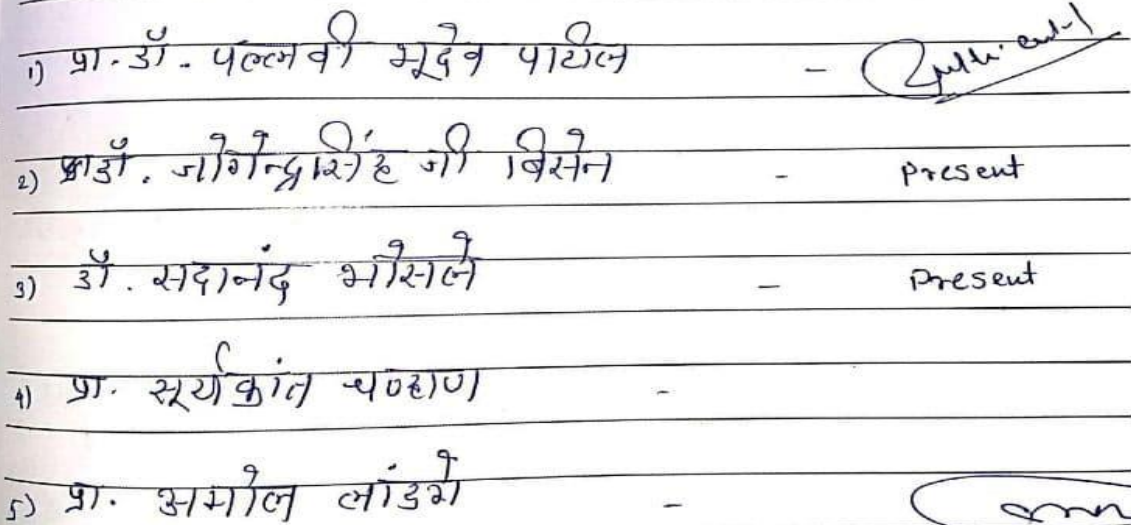 1) प्रा. डॉ. पल्लवी भूदेव पाटील -
2) प्राडॉ. जोगेन्द्रसिंह जी बिसेन - Present
3) डॉ. सदानंद भोसले - Present
4) प्रा. सूर्यकांत चव्हाण -
5) प्रा. अमोल लांडगे -